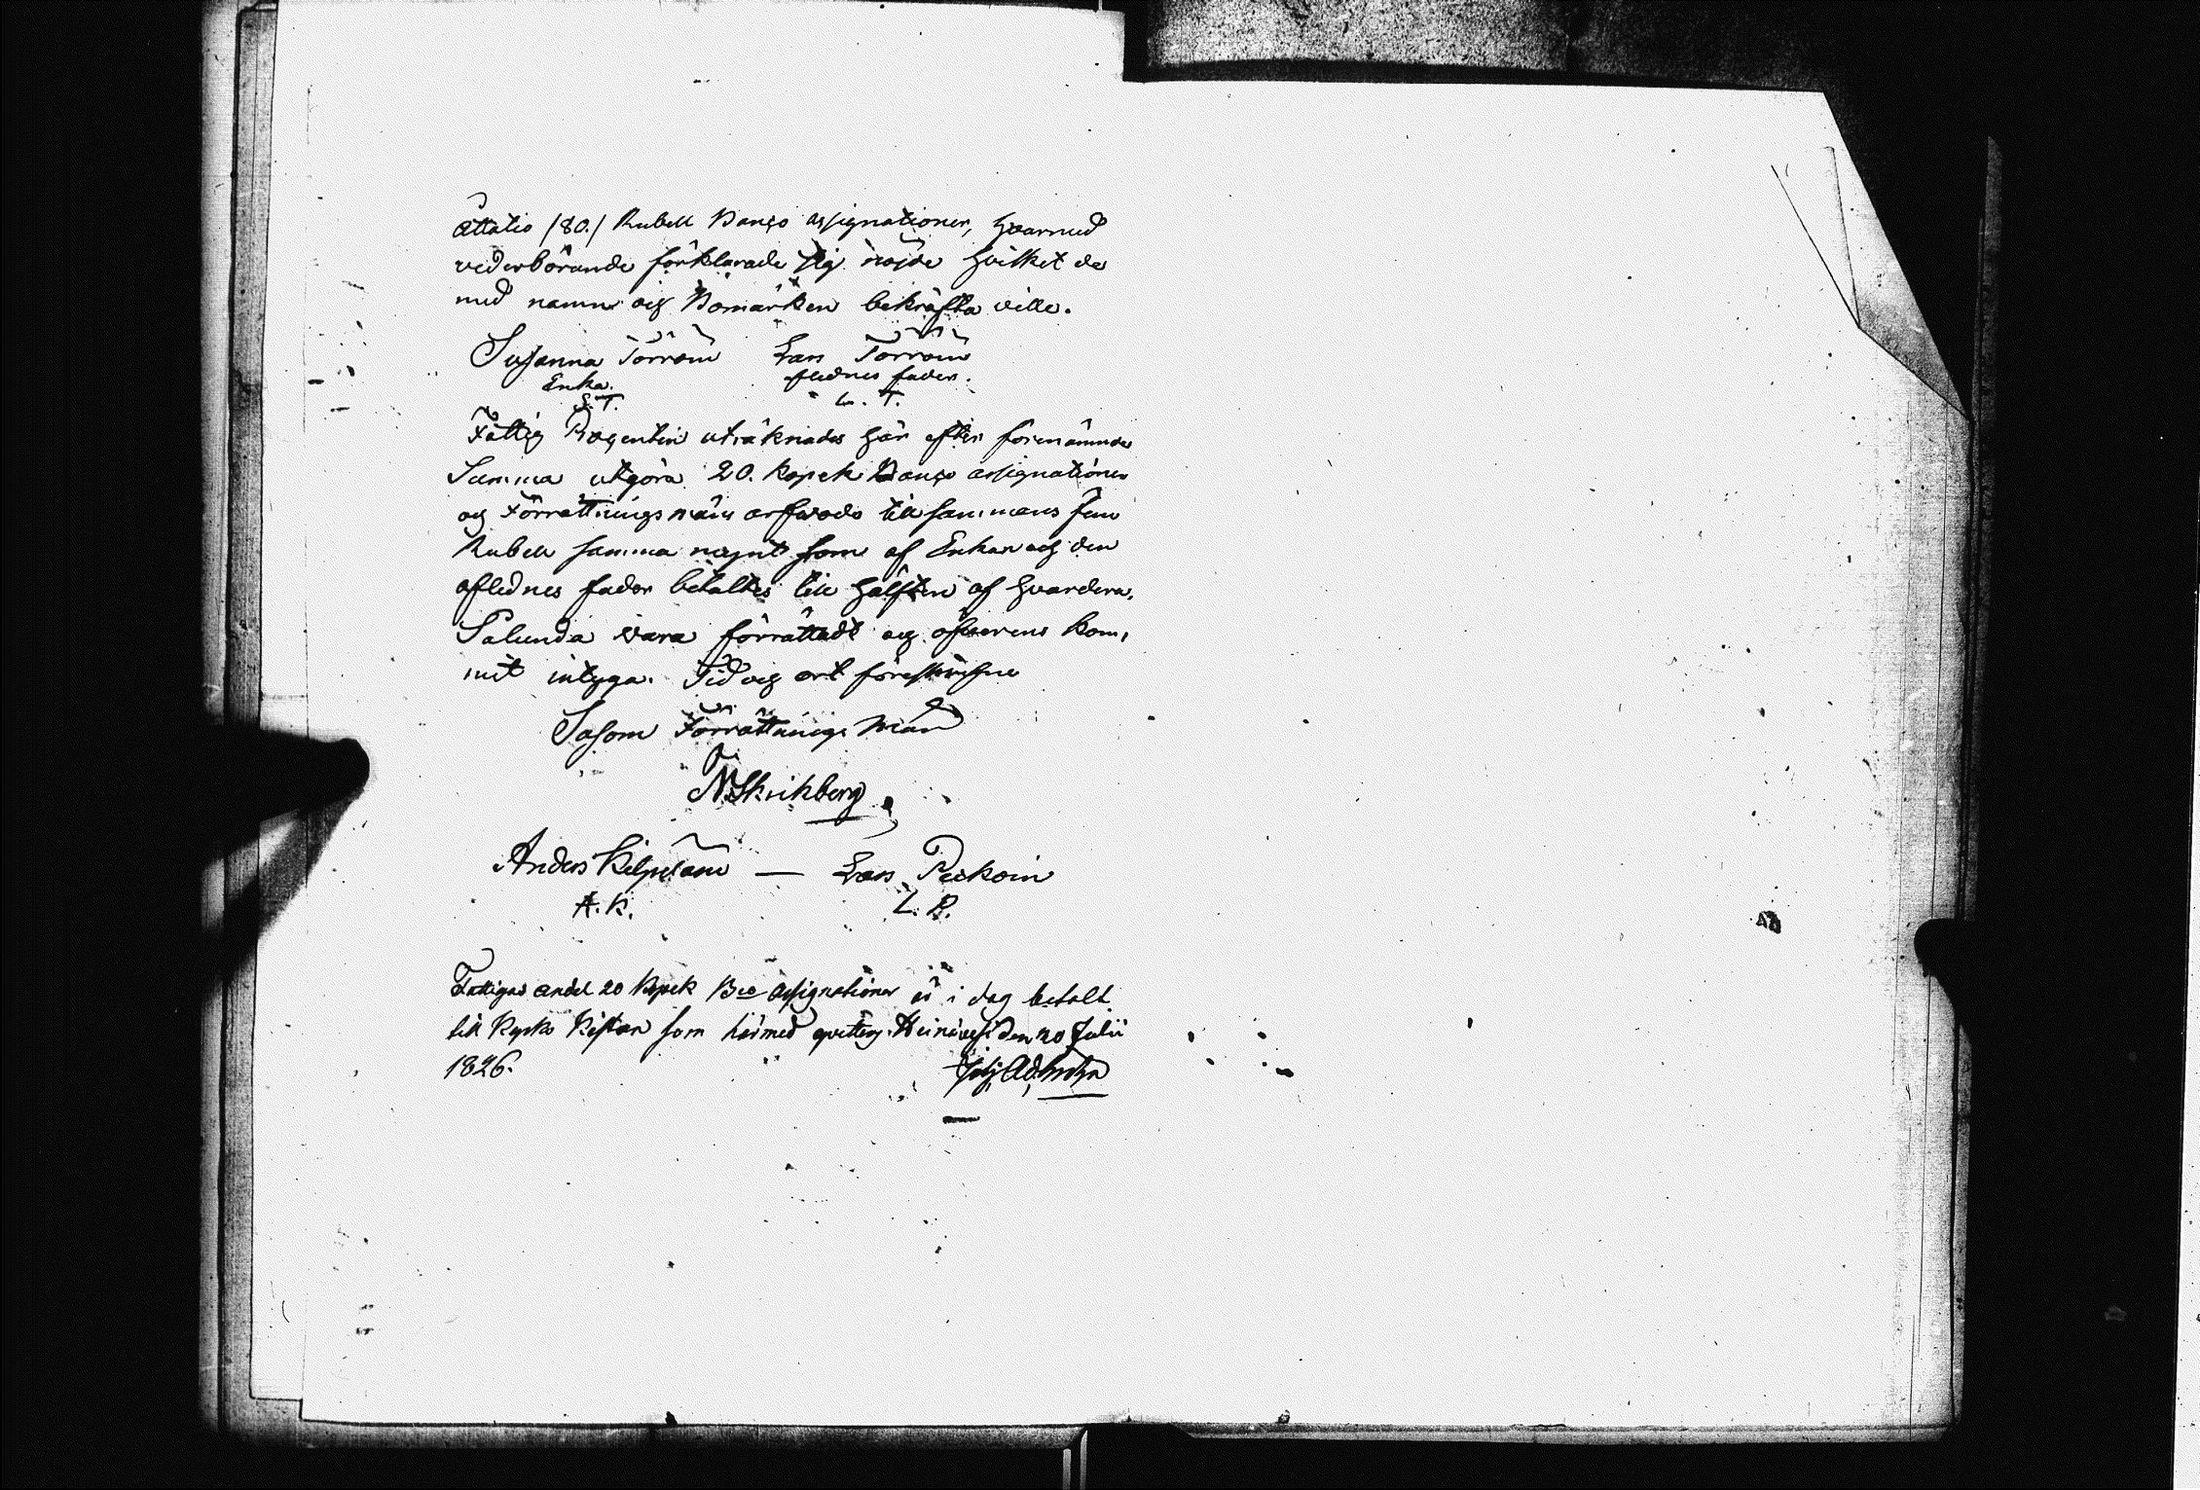 åttatio /80./ Rubell Banco assignationer, hvarmed
vederbörande förklarade sig nöjde hvilket de
med namn och Bomärken bekräfta ville.
Susanna Törröin Lars Törröin
Enka. aflednes fader.
S. T. L. T.
Fattig Procenten uträknades här efter förenämnde
Summa utgöra 20. Kopek Banco assignationer
och Förrättnings män arfvode tillsammans fem
Rubell samma mynt som af Enkan och den
aflednes fader betaltes till hälften af hvardera.
Sålunda vara förrättadt och öfverens kom,
mit intyga. Tid och ort föreskrifne
Såsom Förrättnings Män
N. Skrikberg
Anders Kilpeläin — Lars Peckoin
A. K. L. P.
Fattigas andel 20 Kopek Bco Assignationer är i dag betalt
till Kyrko Kistan som härmed qvitteras Heinävesi den 20 Julii
1826.